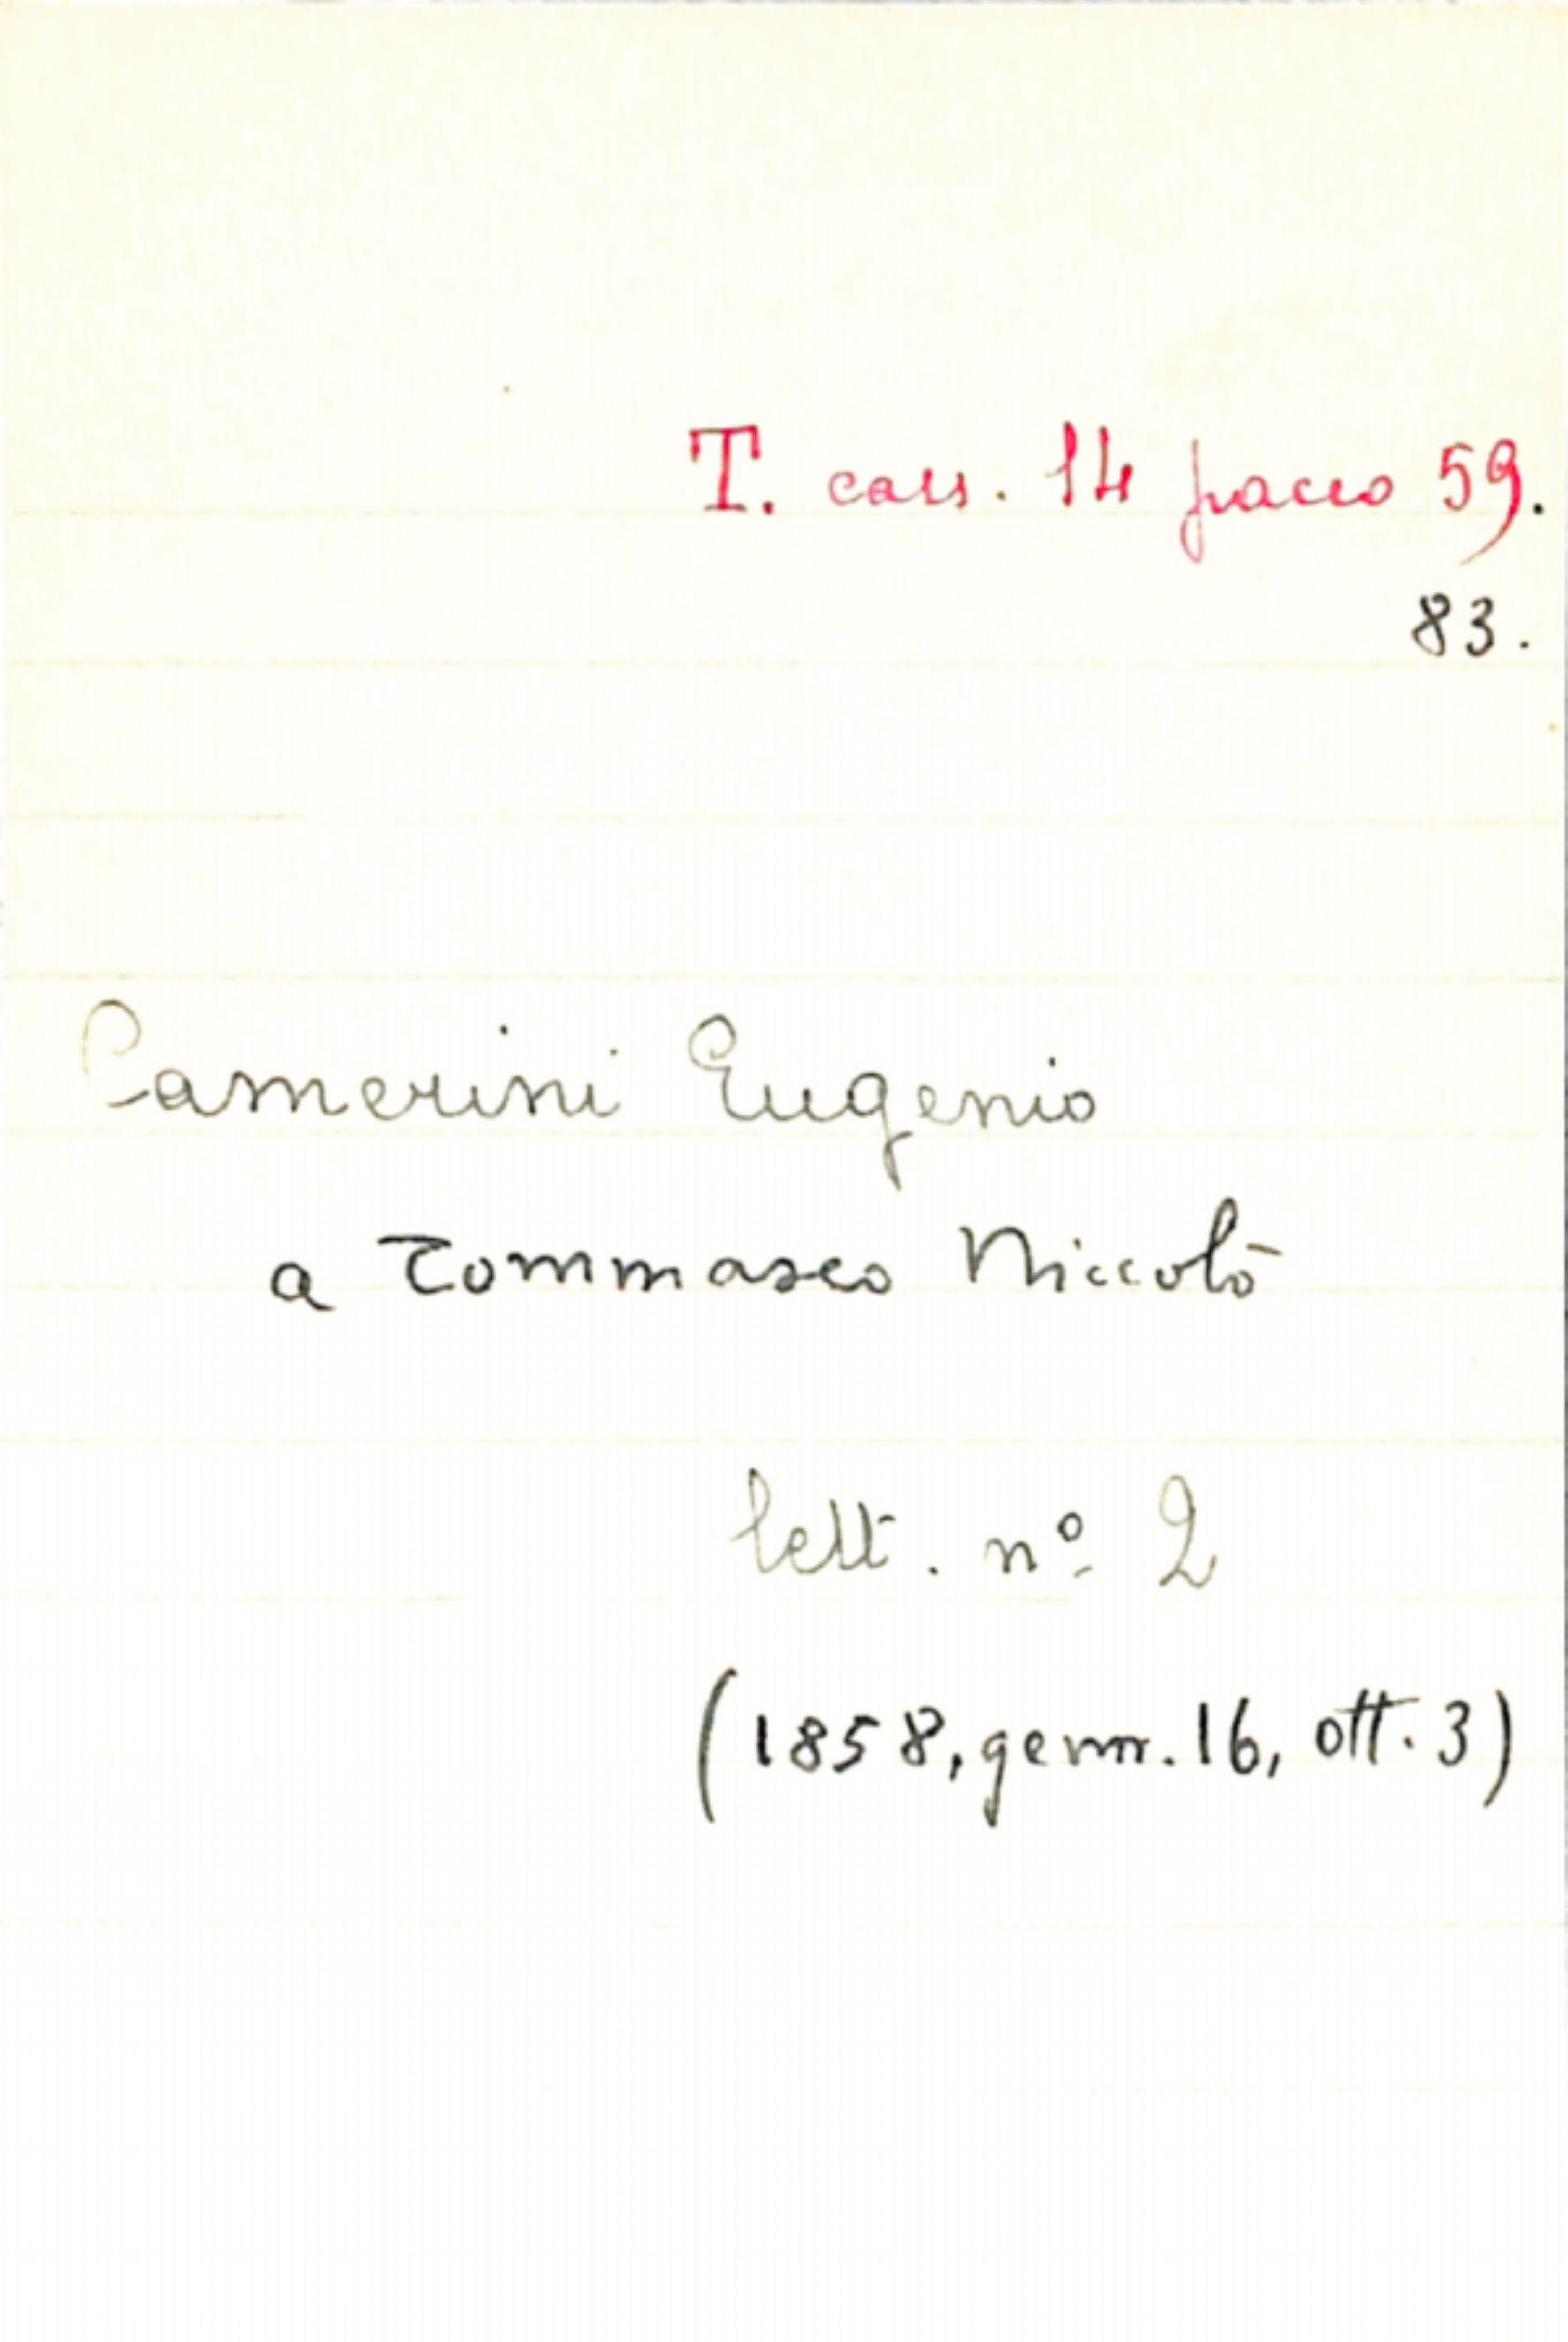 T. cass. 14 pacco 59.
83.
Camerini Eugenio
a Tommaseo Niccolò
lett. nº 2
(1858, genn. 16, ott. 3)